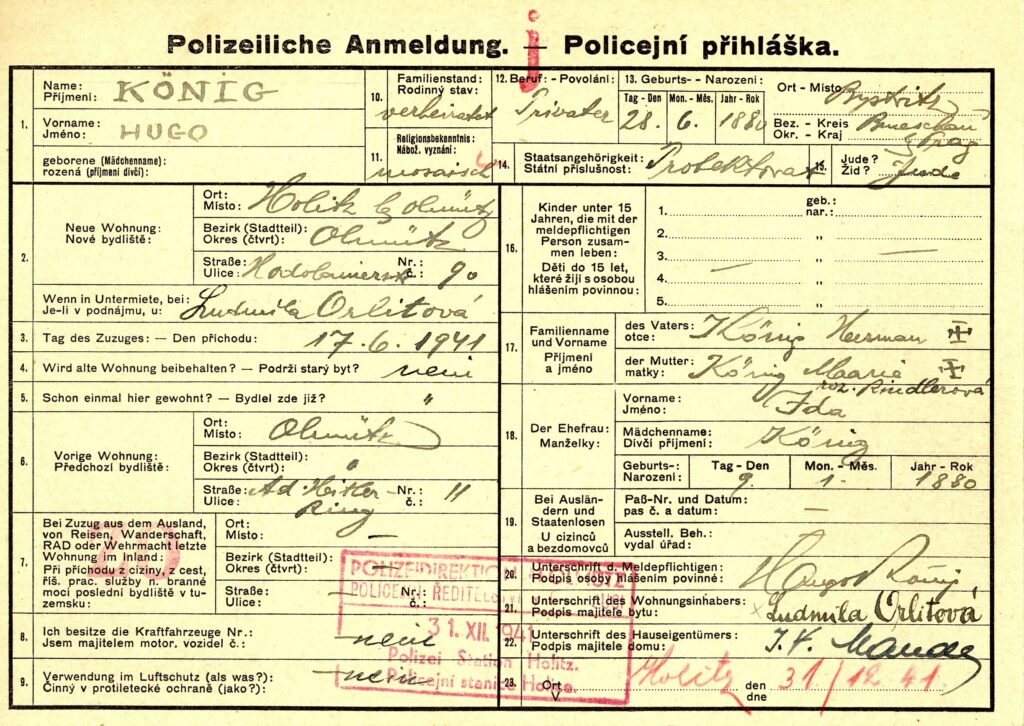 j
Polizeiliche Anmeldung. — Policejní přihláška.
1.
Name:
Příjmení:
KÖNIG
Vorname:
Jméno:
HUGO
geborene (Mädchenname):
rozená (příjmení dívčí):
10.
Familienstand:
Rodinný stav:
verheiratet
11.
Religionsbekenntnis:
Nábož. vyznání:
mosaisch
12. Beruf: - Povolání:
Privater
13. Geburts- - Narození:
Tag - Den
Mon. - Měs.
Jahr - Rok
28. 6. 1880
Ort - Místo
Bystritz
Bez. - Kreis
Okr. - Kraj
Beneschau
Prag
14.
Staatsangehörigkeit:
Státní příslušnost:
Protektorat
15.
Jude?
Žid?
Jude
2.
Neue Wohnung:
Nové bydliště:
Ort:
Místo:
Holitz b/ Olmütz
Bezirk (Stadtteil):
Okres (čtvrt):
Olmütz
Straße:
Ulice:
Nr.:
č.:
90
Wenn in Untermiete, bei:
Je-li v podnájmu, u:
Ludmila Orlitová
3. Tag des Zuzuges: — Den příchodu:
17. 6. 1941
4. Wird alte Wohnung beibehalten? — Podrží starý byt?
neni
5. Schon einmal hier gewohnt? — Bydlel zde již?
"
6.
Vorige Wohnung:
Předchozí bydliště:
Ort:
Místo:
Olmütz
Bezirk (Stadtteil):
Okres (čtvrt):
"
Straße:
Ulice:
Ad. Hitler
Ring
Nr.:
č.:
11
7.
Bei Zuzug aus dem Ausland,
von Reisen, Wanderschaft,
RAD oder Wehrmacht letzte
Wohnung im Inland:
Při příchodu z ciziny, z cest,
říš. prac. služby n. branné
moci poslední bydliště v tu-
zemsku:
Ort:
Místo:
—
Bezirk (Stadtteil):
Okres (čtvrt):
—
Straße:
Ulice:
—
Nr.:
č.:
8.
Ich besitze die Kraftfahrzeuge Nr.:
Jsem majitelem motor. vozidel č.:
neni
9.
Verwendung im Luftschutz (als was?):
Činný v protiletecké ochraně (jako?):
neni
16.
Kinder unter 15
Jahren, die mit der
meldepflichtigen
Person zusam-
men leben:
Děti do 15 let,
které žijí s osobou
hlášením povinnou:
geb.:
nar.:
1.
2. "
3. "
4. "
5. "
17.
Familienname
und Vorname
Příjmení
a jméno
des Vaters:
otce:
König Herman
der Mutter:
matky:
König Maarie
roz. Rindlerová
18.
Der Ehefrau:
Manželky:
Vorname:
Jméno:
Ida
Mädchenname:
Dívčí příjmení:
König
Geburts-:
Narození:
Tag - Den
Mon. - Měs.
Jahr - Rok
9. 1. 1880
19.
Bei Auslän-
dern und
Staatenlosen
U cizinců
a bezdomovců
Paß-Nr. und Datum:
pas č. a datum:
—
Ausstell. Beh.:
vydal úřad:
—
20.
Unterschrift d. Meldepflichtigen:
Podpis osoby hlášením povinné:
Hugo König
21.
Unterschrift des Wohnungsinhabers:
Podpis majitele bytu:
Ludmila Orlitová
22.
Unterschrift des Hauseigentümers:
Podpis majitele domu:
23.
Ort
V
Holitz
den
dne
31/12. 41.
POLIZEIDIREKTION OLMÜTZ
POLICEJNÍ ŘEDITELSTVÍ
31. XII. 1941
Polizei Station Holitz.
Policejní stanice Holice.